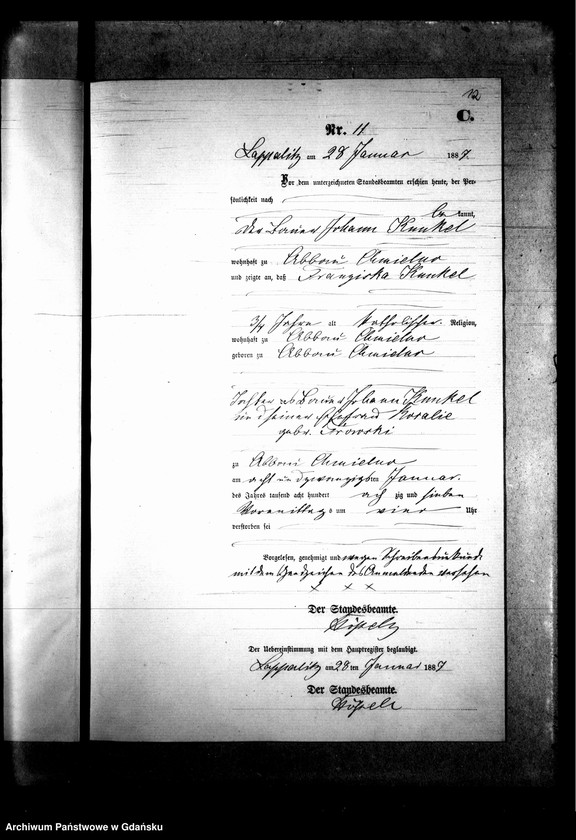 12
C.
Nr. 11
Lapperlitz am 28 Januar 1887.
Vor dem unterzeichneten Standesbeamten erschien heute, der Per-
sönlichkeit nach
bekannt,
der Bauer Johann Kunkel
wohnhaft zu Abbau Chmielno
und zeigte an, daß Franziska Kunkel
3/4 Jahre alt katholischer Religion,
wohnhaft zu Abbau Chmielno
geboren zu Abbau Chmielno
Tochter des Bauer Johann Kunkel
und seiner Ehefrau Rosalie
gebr.
zu Abbau Chmielno
am acht und zwanzigsten Januar
des Jahres tausend acht hundert achtzig und sieben
Vormittags um vier Uhr
verstorben sei
Vorgelesen, genehmigt und wegen Schreibensunkunde
mit dem Handzeichen des Anmeldenden versehen
x x x
Der Standesbeamte.
Der Uebereinstimmung mit dem Hauptregister beglaubigt.
Lapperlitz am 28 ten Januar 1887
Der Standesbeamte.
Archiwum Państwowe w Gdańsku